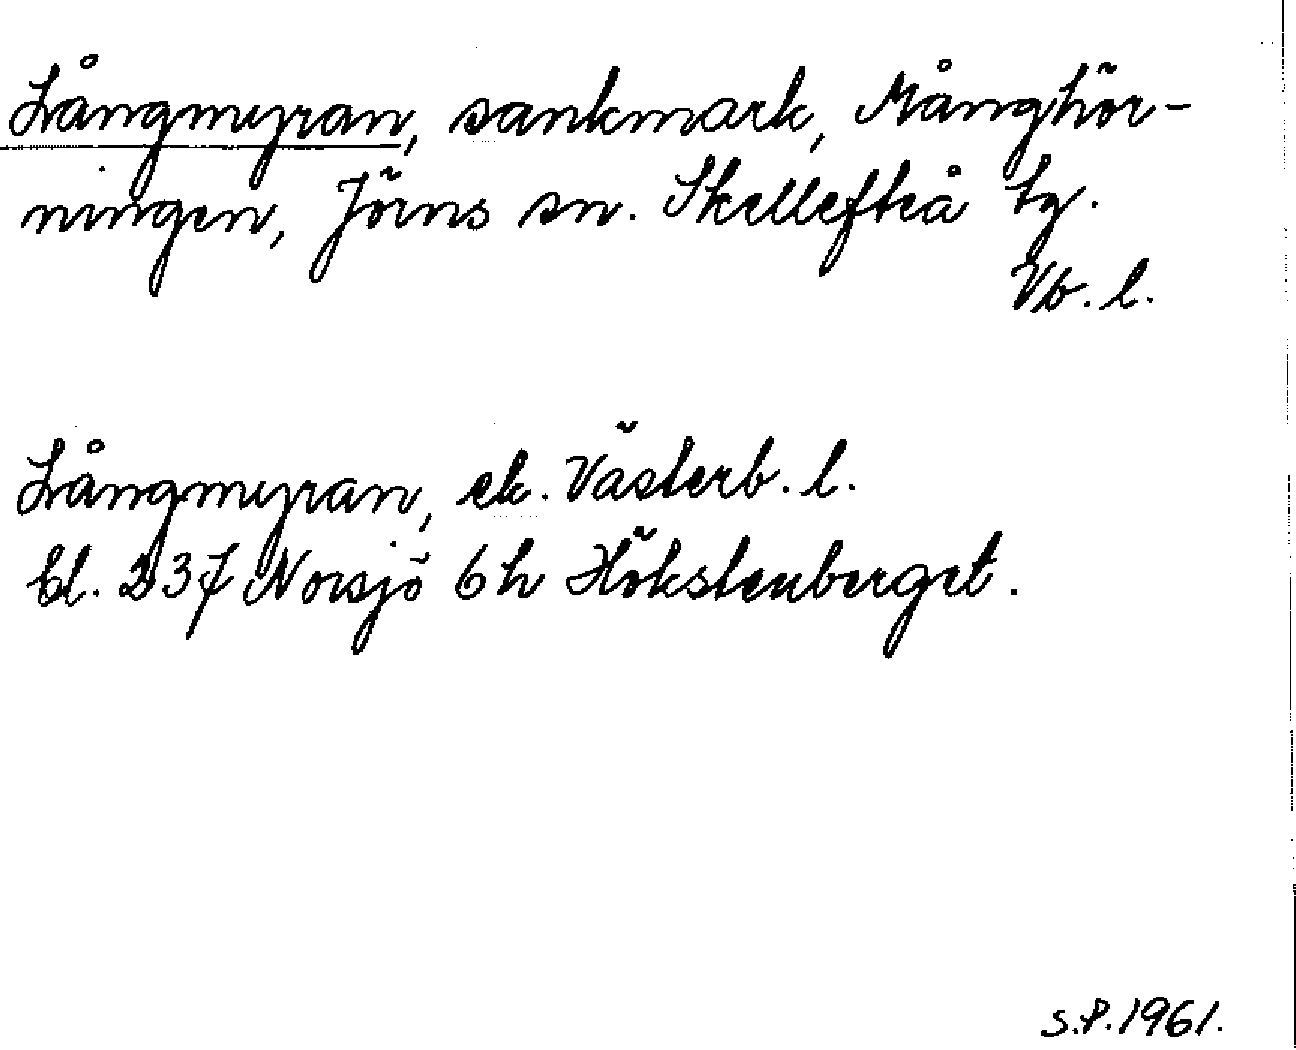 Långmyran, sankmark, Månghör-
ningen, Jörns sn. Skellefteå tg.
Vb. l.
Långmyran, ek. Västerb. l.
bl. 237 Norsjö 6h Högstenberget.
S.P. 1961.